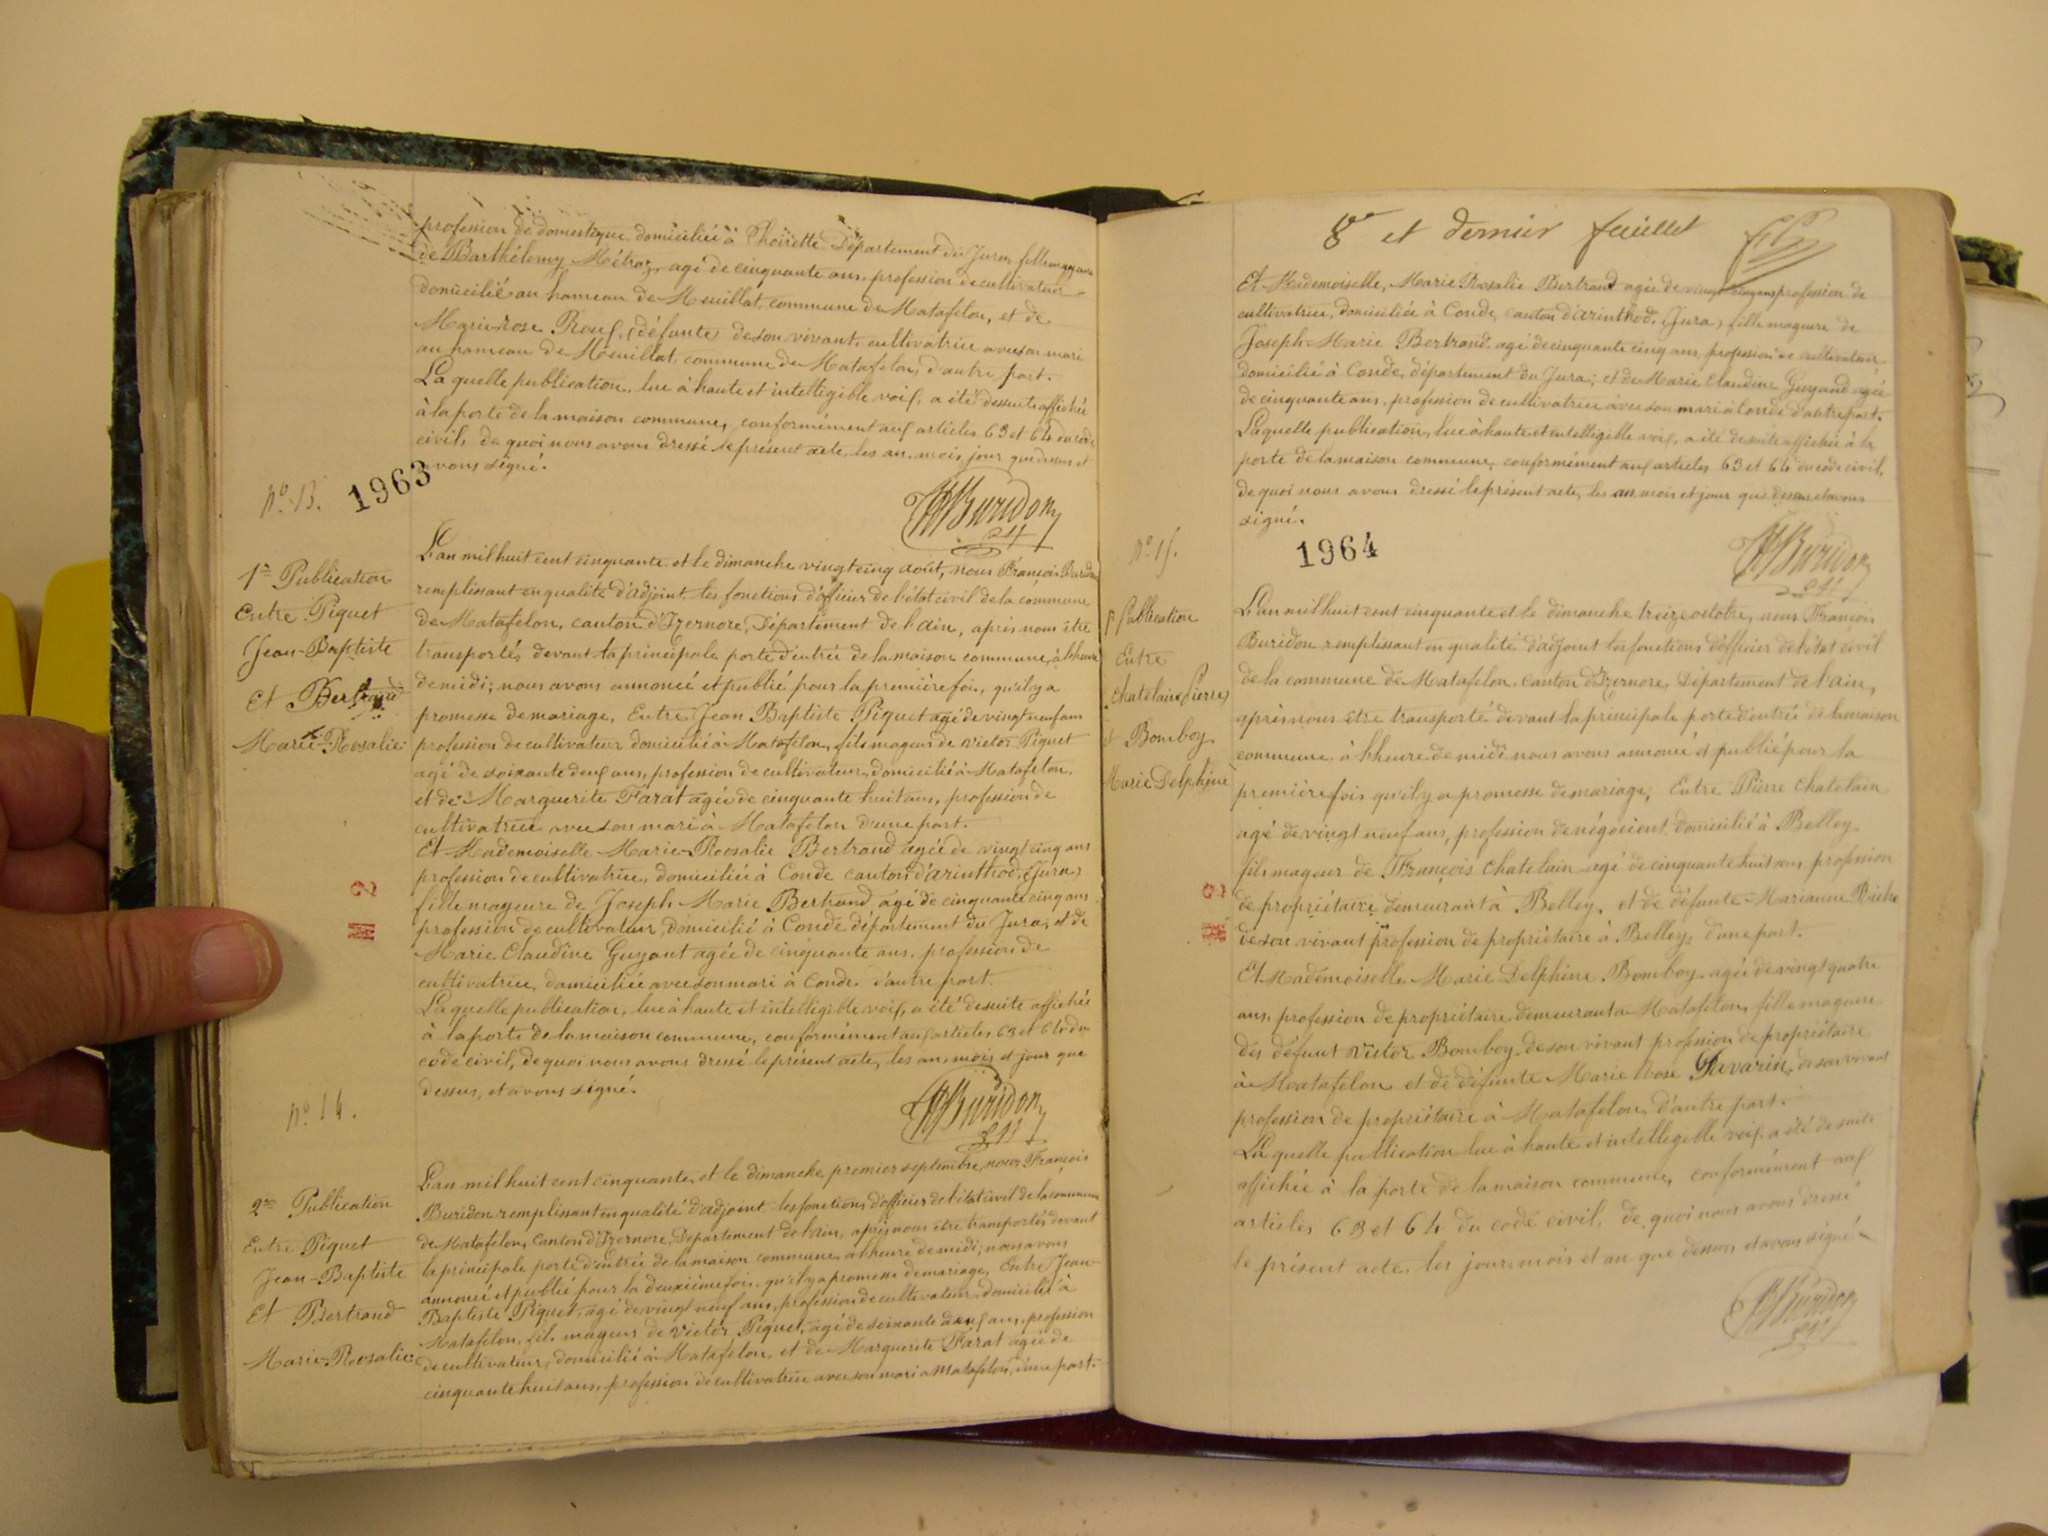 profession de domestique domiciliée à Thoirette Département du Jura, fille majeure
de Barthélemy Métraz, agé de cinquante ans, profession de cultivateur
domicilié au hameau de Heuillat, commune de Matafelon, et de
Marie-rose Roux, (défunte) de son vivant, cultivatrice avec son mari
au hameau de Heuillat, commune de Matafelon, d'autre part.
La quelle publication, lue à haute et intelligible voix, a été de suite affichée
à la porte de la maison commune, conformément aux articles 63 et 64 du code
civil, de quoi nous avons dressé le présent acte, les an, mois, jour que dessus et
avons signé.
Buridon
N° 13.
1963
1re Publication
Entre Piquet
Jean-Baptiste
Et Bertrand
Marie-Rosalie
L'an mil huit cent cinquante et le dimanche vingt cinq août, nous François Buridon
remplissant en qualité d'adjoint les fonctions d'officier de l'état civil de la commune
de Matafelon, canton d'Izernore, Département de l'ain, après nous être
transportés devant la principale porte d'entrée de la maison commune, à l'heure
de midi; nous avons annoncé et publié pour la première fois, qu'il y a
promesse de mariage, Entre Jean Baptiste Piquet agé de vingt neuf ans
profession de cultivateur domicilié à Matafelon, fils mageur de Victor Piquet
agé de soixante deux ans, profession de cultivateur, domicilié à Matafelon,
et de Marguerite Farat agée de cinquante huit ans, profession de
cultivatrice avec son mari à Matafelon d'une part.
Et Mademoiselle Marie-Roosalie Bertrand agée de vingt cinq ans
profession de cultivatrice, domiciliée à Conde canton d'arinthod, (Jura)
fille mageure de Joseph Marie Bertrand, agé de cinquante cinq ans
profession de cultivateur, domicilié à Conde département du Jura, et de
Marie Claudine Guyant agée de cinquante ans, profession de
cultivatrice, domiciliée avec son mari à Conde, d'autre part.
La quelle publication, lue à haute et intelligible voix, a été de suite affichée
à la porte de la maison commune, conformément aux articles 63 et 64 du
code civil, de quoi nous avons dressé le présent acte, les an, mois et jour que
dessus, et avons signé.
Buridon
N° 14.
2me Publication
Entre Piquet
Jean-Baptiste
Et Bertrand
Marie-Roosalie
L'an mil huit cent cinquante, et le dimanche premier septembre, nous François
Buridon remplissant en qualité d'adjoint les fonctions d'officier de l'état civil de la commune
de Matafelon, canton d'Izernore, Département de l'ain, après nous être transportés devant
la principale porte d'entrée de la maison commune, à l'heure de midi; nous avons
annoncé et publié pour la deuxième fois, qu'il y a promesse de mariage, Entre Jean-
Baptiste Piquet, agé de vingt neuf ans, profession de cultivateur, domicilié à
Matafelon, fils mageur de Victor Piquet, agé de soixante deux ans, profession
de cultivateur, domicilié à Matafelon, et de Marguerite Farat agée de
cinquante huit ans, profession de cultivatrice avec son mari à Matafelon, d'une part.
8e et dernier feuillet
Et Mademoiselle, Marie Roosalie Bertrand agée de vingt cinq ans profession de
cultivatrice, domiciliée à Conde, canton d'arinthod, (Jura) fille mageure de
Joseph-Marie Bertrand agé de cinquante cinq ans, profession de cultivateur
domicilié à Conde, département du Jura; et de Marie Claudine Guyand agée
de cinquante ans, profession de cultivatrice avec son mari à Conde d'autre part.
Laquelle publication, lue à haute et intelligible voix, a été de suite affichée à la
porte de la maison commune, conformément aux articles 63 et 64 du code civil,
de quoi nous avons dressé le présent acte, les an mois et jour que dessus et avons
signé.
Buridon
N° 15.
1964
1re Publication
Entre
Chatelain Pierre
et Bomboy
Marie Delphine
L'an mil huit cent cinquante et le dimanche treize octobre, nous François
Buridon remplissant en qualité d'adjoint les fonctions d'officier de l'état civil
de la commune de Matafelon, canton d'Izernore, Département de l'ain,
après nous être transporté devant la principale porte d'entrée de la maison
commune, à l'heure de midi nous avons annoncé et publié pour la
première fois qu'il y a promesse de mariage, Entre Pierre Chatelain
agé de vingt neuf ans, profession de négociant, domicilié à Belley
fils mageur de François Chatelain agé de cinquante huit ans, profession
de propriétaire demeurant à Belley, et de défunte Marianne
de son vivant profession de propriétaire à Belley, d'une part.
Et Mademoiselle Marie Delphine Bomboy agée de vingt quatre
ans, profession de propriétaire, demeurant à Matafelon, fille mageure
des défunt Victor Bomboy de son vivant profession de propriétaire
à Matafelon et de défunte Marie rose Savarin, de son vivant
profession de propriétaire à Matafelon, d'autre part.
La quelle publication lue à haute et intellegible voix, a été de suite
affichée à la porte de la maison commune, conformément aux
articles 63 et 64 du code civil, de quoi nous avons dressé
le présent acte, les jour, mois et an que dessus et avons signé.
Buridon